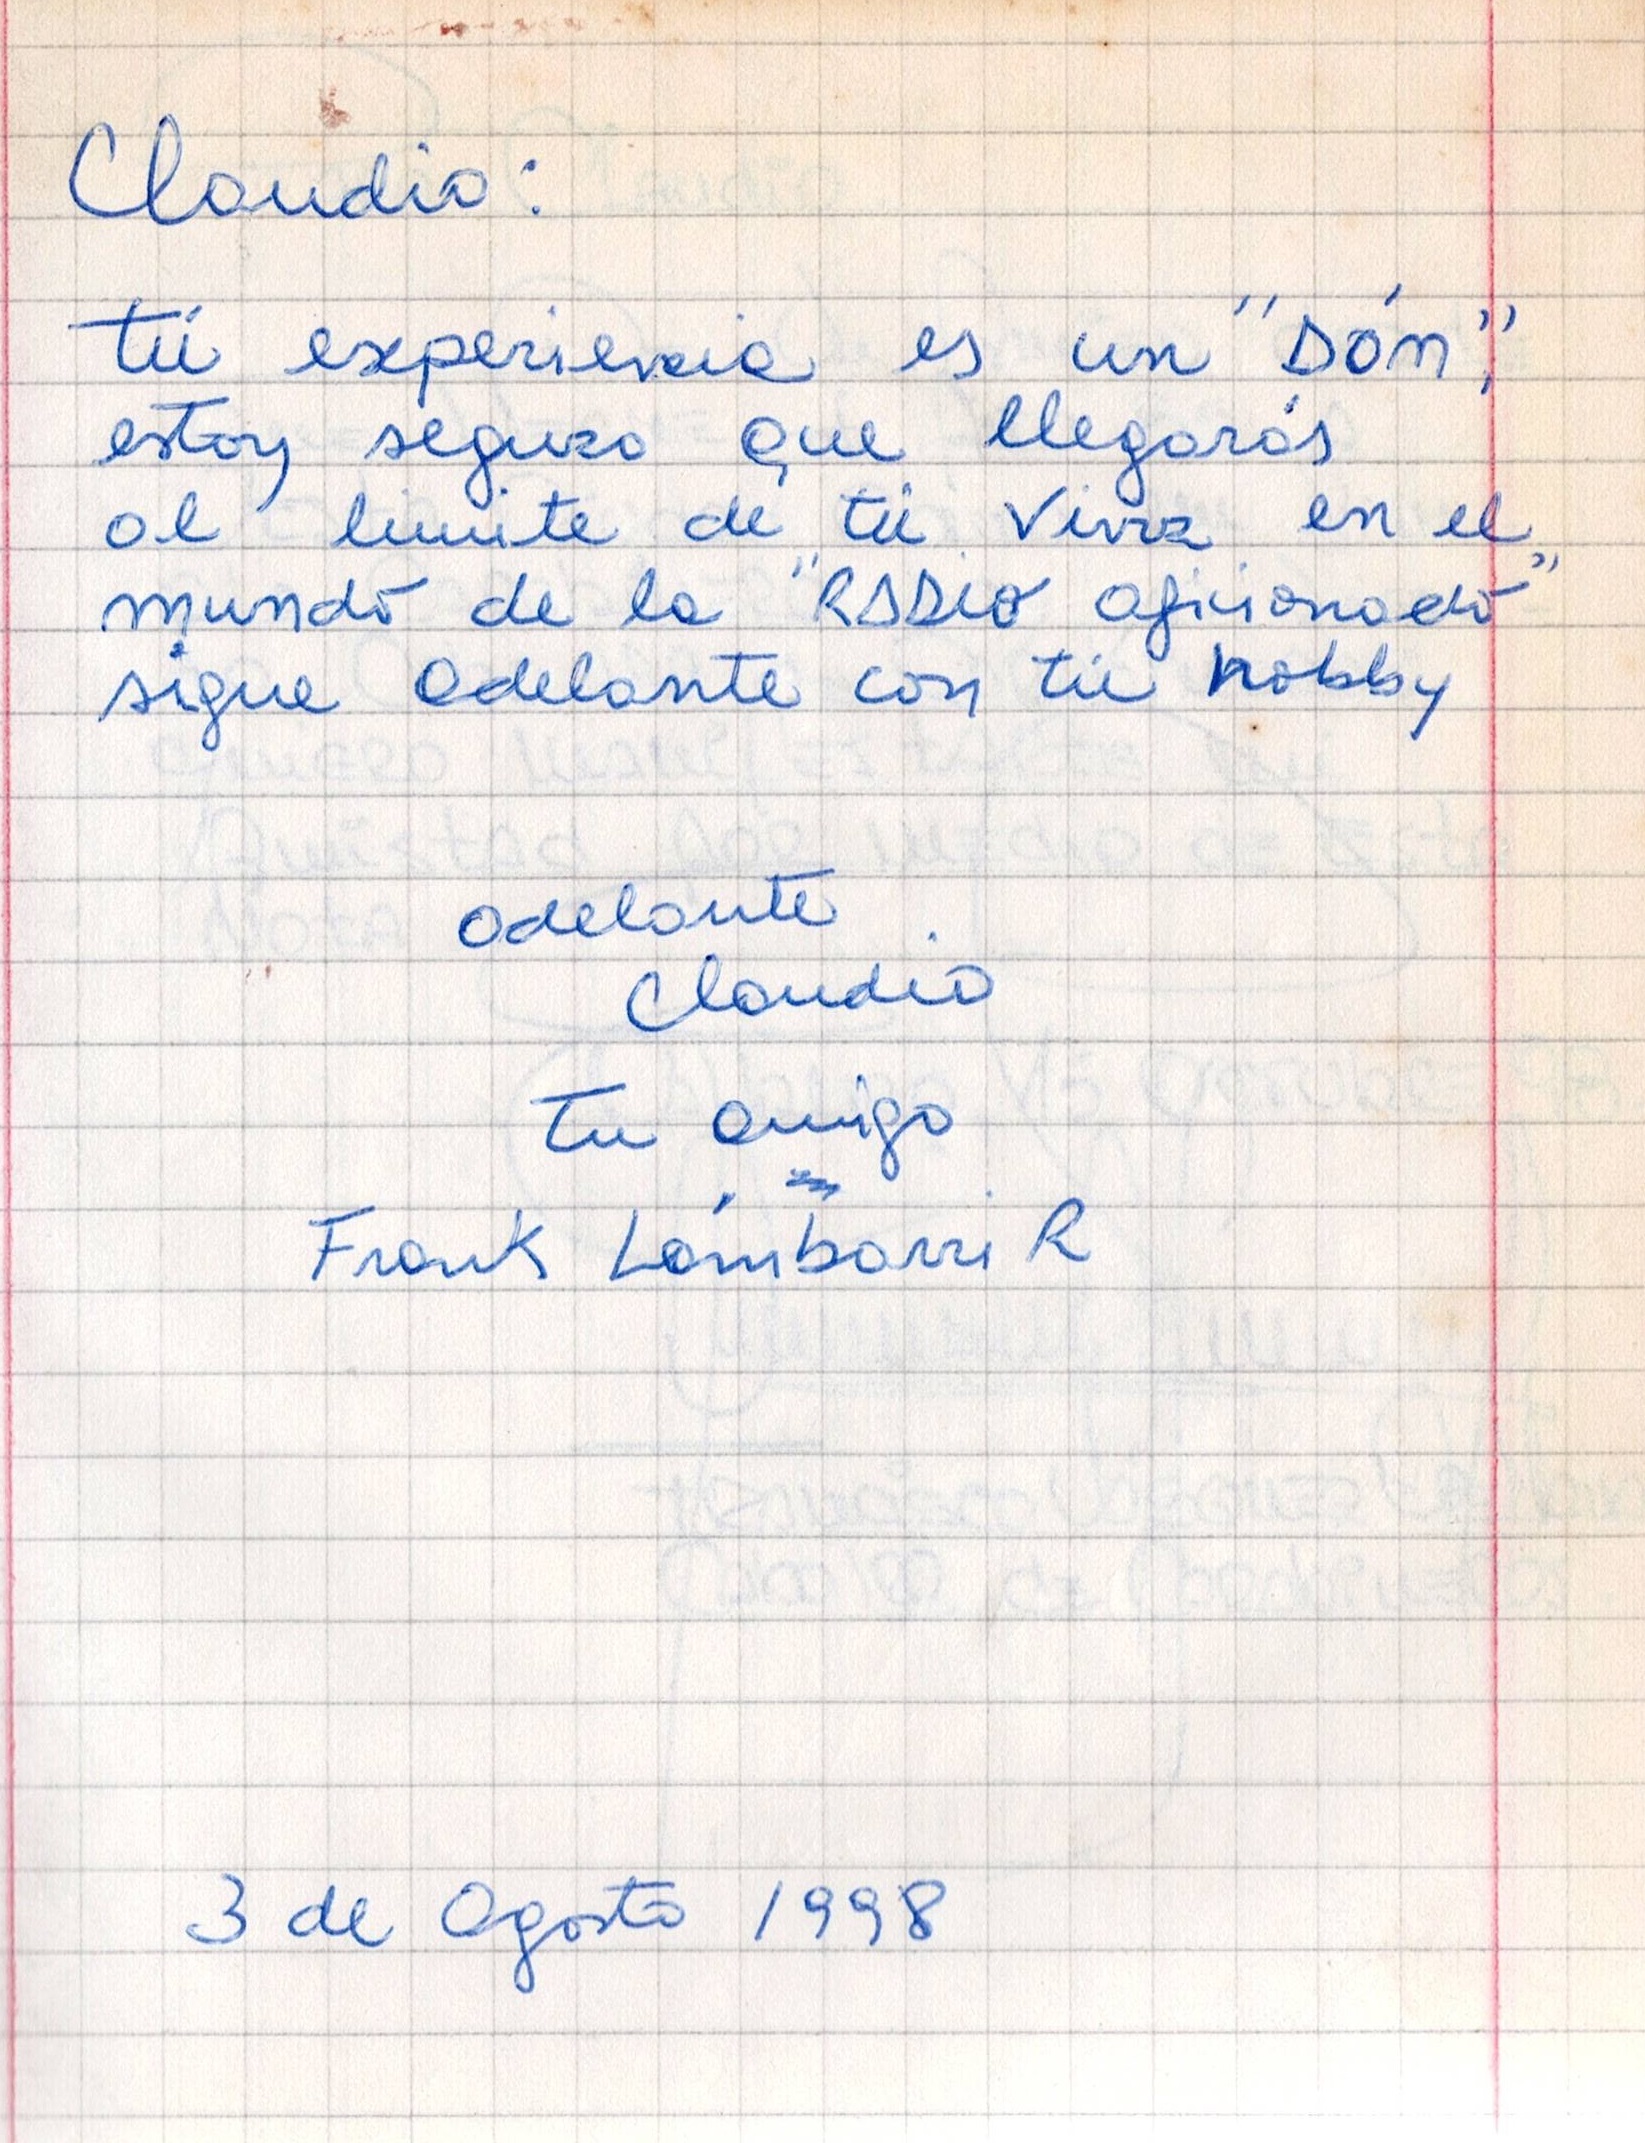 Claudio:
tú experiencia es un "DÓN",
estoy seguro que llegarás
al limite de tú vivir en el
mundo de la "RADIO aficionado"
sigue adelante con tú hobby
adelante
Claudio
tu amigo
Frank Lámbarri R
3 de Agosto 1998